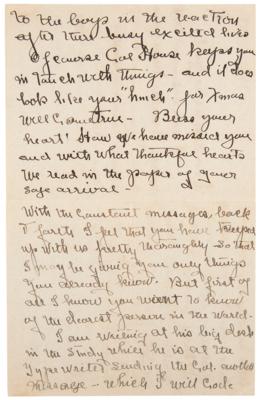 to the boys in the reaction
after their busy excited lives
Of course Col House keeps you
in touch with things - and it does
look like your "hunch" for Xmas
Will Come true - Bless your
heart! How we have missed you
and with What thankful hearts
We read in the paper of your
safe arrival -
With the Constant messages back
& forth I feel that you have keeped
up With us pretty thoroughly so that
I may be giving you only things
you already know. But first of
all I know you want to know
of the dearest person in the World.
I am writing at his big desk
in the Study while he is at the
typewriter sending the Col. another
message - which I will Code